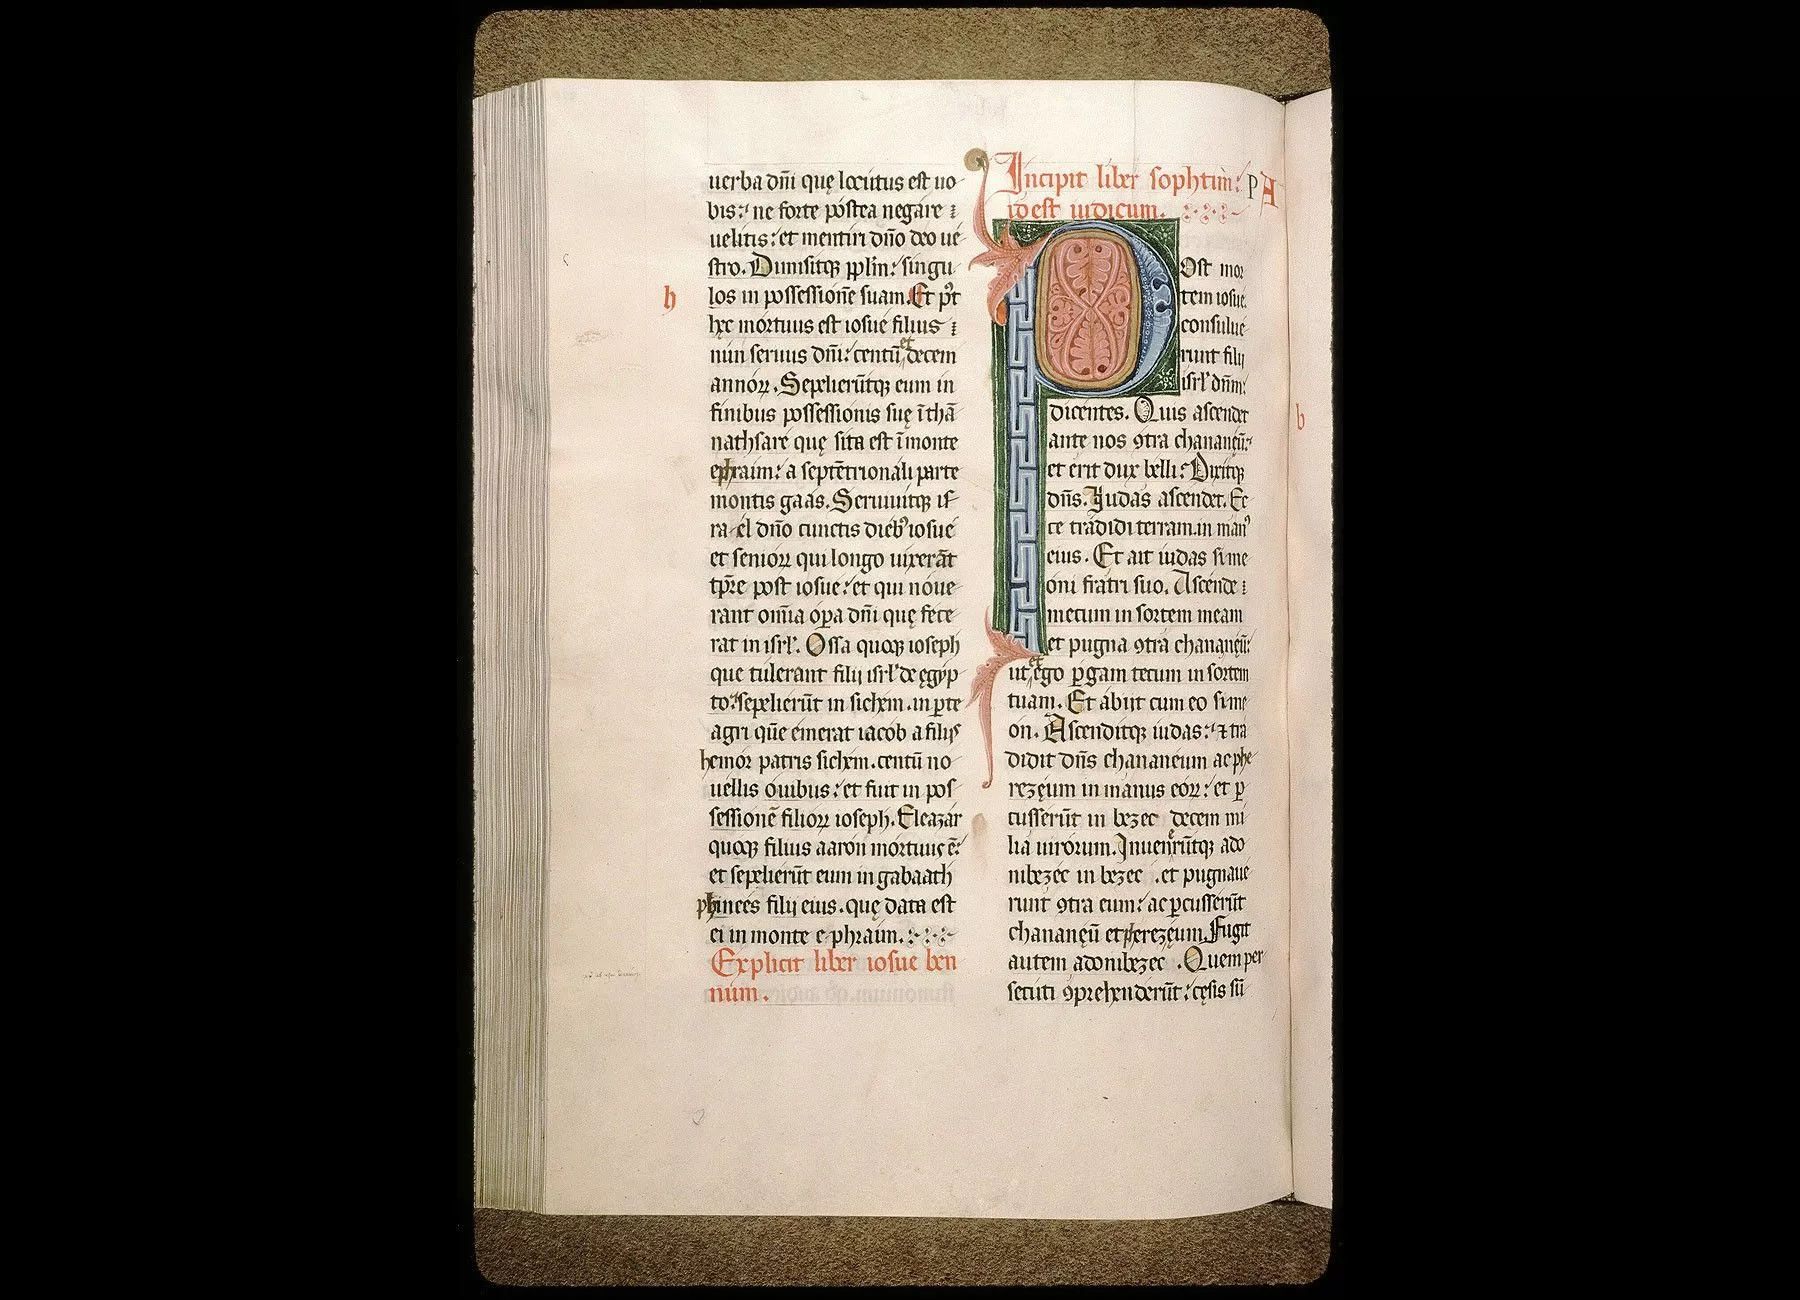 uerba dñi quę locutus est uo
bis: ne forte postea negare
uelitis: et mentiri dño deo ue
stro. Dimisitqꝫ pplm: singu
h
los in possessione suam. Et pꝰt
hec mortuus est iosue filius
nun seruus dñi: centū et decem
annoꝝ. Sepelierūtqꝫ eum in
finibus possessionis suę ī thā
nathsare quę sita est ī monte
ephraim: a septētrionali parte
montis gaas. Seruiuitqꝫ is
rael dño cunctis diebꝰ iosue
et senioꝝ qui longo uixerāt
tp̄re post iosue: et qui noue
rant om̄ia opa dñi quę fece
rat in isrl. Ossa quoqꝫ ioseph
que tulerant filij isrl de ęgyp
to: sepelierūt in sichem. in ꝑte
agri quē emerat iacob a filijs
hemor patris sichem. centū no
uellis ouibus: et fuit in pos
sessionē filioꝝ ioseph. Eleazar
quoqꝫ filius aaron mortuus ē:
et sepelierūt eum in gabaath
phinees filij eius. quę data est
ei in monte ephraim.
Explicit liber iosue ben
num.
Incipit liber sophtim: PA
idest iudicum.
Post mor
tem iosue.
consulue
runt filij
isrl dñm:
dicentes. Quis ascendet
b
ante nos ꝯtra chananęū:
et erit dux belli: Dixitqꝫ
dñs. Judas ascendet. Ec
ce tradidi terram in manꝰ
eius. Et ait iudas sime
oni fratri suo. Ascende
mecum in sortem meam
et pugna ꝯtra chananęū:
ut et ego ꝑgam tecum in sortem
tuam. Et abiit cum eo sime
on. Ascenditqꝫ iudas: ⁊ tra
didit dñs chananeum ac phe
rezęum in manus eoꝝ: et ꝑ
cusserūt in bezec decem mi
lia uirorum. Inuenerūtqꝫ ado
nibezec in bezec. et pugnaue
runt ꝯtra eum: ac ꝑcusserūt
chananęū et pherezęum. Fugit
autem adonibezec. Quem per
secuti ꝯprehenderūt: cęsis sū